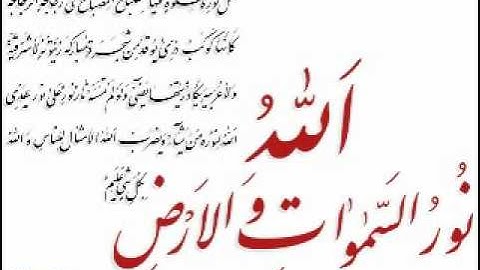 مثل نوره كمشكوة فيها مصباح المصباح فى زجاجة الزجاجة
كانها كوكب درى يوقد من شجرة مباركة زيتونة لا شرقية
ولا غربية يكاد زيتها يضئ ولو لم تمسسه نار نور على نور يهدى
الله لنوره من يشآء ويضرب الله الامثال للناس و الله
بكل شئ عليم
اَللّٰهُ
نُورُ السَّمٰوَاتِ وَ الْاَرْضِ